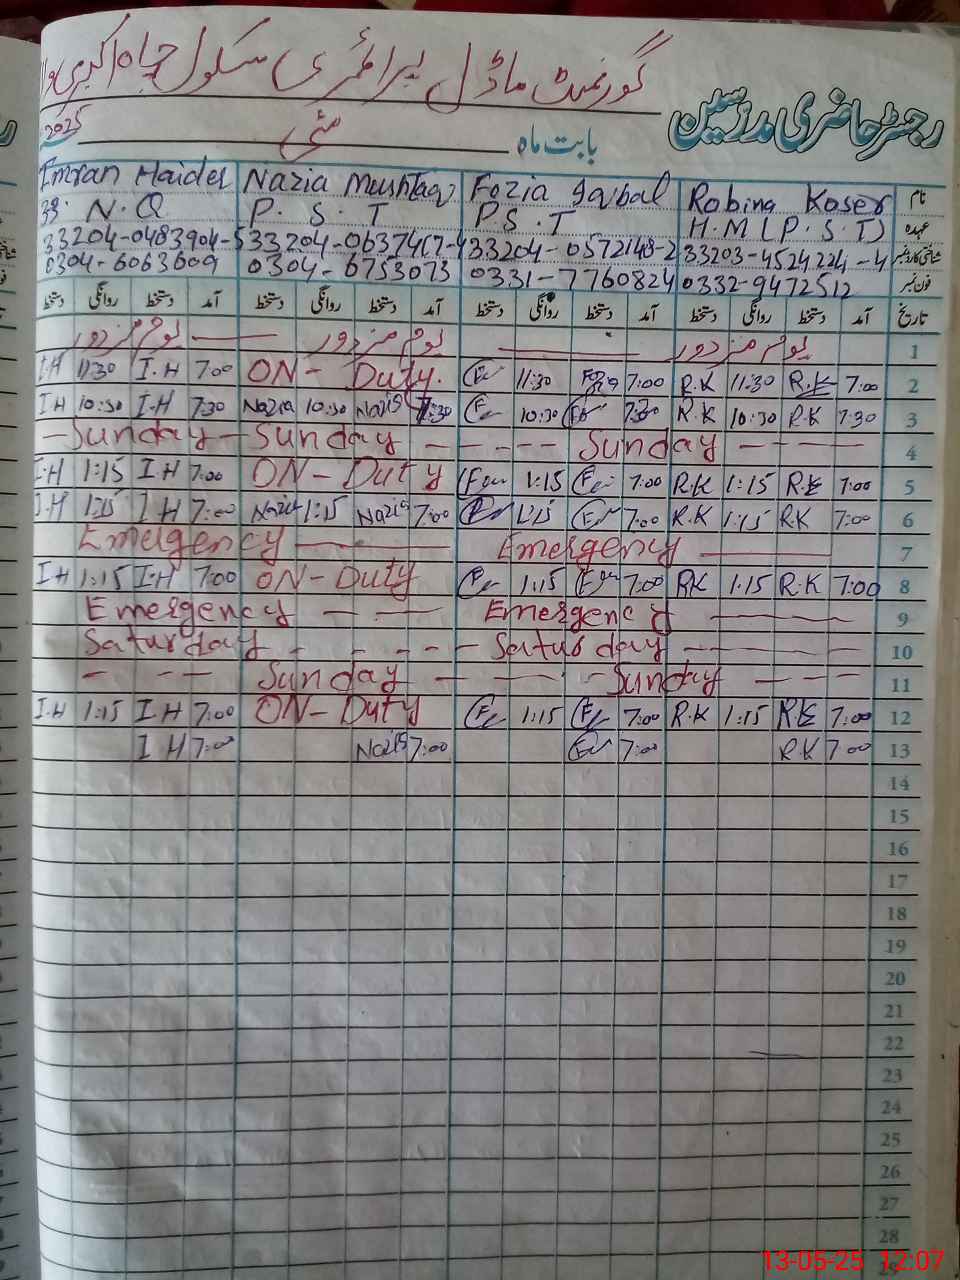 گورنمنٹ ماڈل پرائمری سکول چاہ اکبری والا
رجسٹر حاضری مدرسین
بابت ماہ مئی 2025
نام Robina Koser Fozia Iqbal Nazia Mushtaq Imran Haider
عہدہ H.M (P.S.T) P S.T P. S. T N.Q
شناختی کارڈ نمبر 33203-4524224-4 33204-0572148-2 33204-0637467-4 33204-0483904-5
فون نمبر 0332-9472512 0331-7760824 0304-6753073 0304-6063609
تاریخ آمد دستخط روانگی دستخط آمد دستخط روانگی دستخط آمد دستخط روانگی دستخط آمد دستخط روانگی دستخط
1 یوم مزدور یوم مزدور یوم مزدور
2 7:00 R.K 11:30 R.K 7:00 11:30 ON-Duty. 7:00 I.H 11:30 I.H
3 7:30 R.K 10:30 R.K 7:30 10:30 7:30 Nazia 10:30 Nazia 7:30 I-H 10:30 I.H
4 Sunday Sunday Sunday
5 7:00 R.K 1:15 R.K 7:00 1:15 ON-Duty 7:00 I.H 1:15 I.H
6 7:00 R.K 1:15 R.K 7:00 1:15 7:00 Nazia 1:15 Nazia 7:00 I H 1:15 I.H
7 Emergency Emergency
8 7:00 R.K 1:15 RK 7:00 1:15 ON-Duty 7:00 I.H 1:15 I.H
9 Emergency Emergency
10 Saturday Saturday
11 Sunday Sunday
12 7:00 RK 1:15 R.K 7:00 1:15 ON-Duty 7:00 I H 1:15 I.H
13 7:00 R.K 7:00 7:00 Nazia 7:00 I H
14
15
16
17
18
19
20
21
22
23
24
25
26
27
28
29
13-05-25 12:07